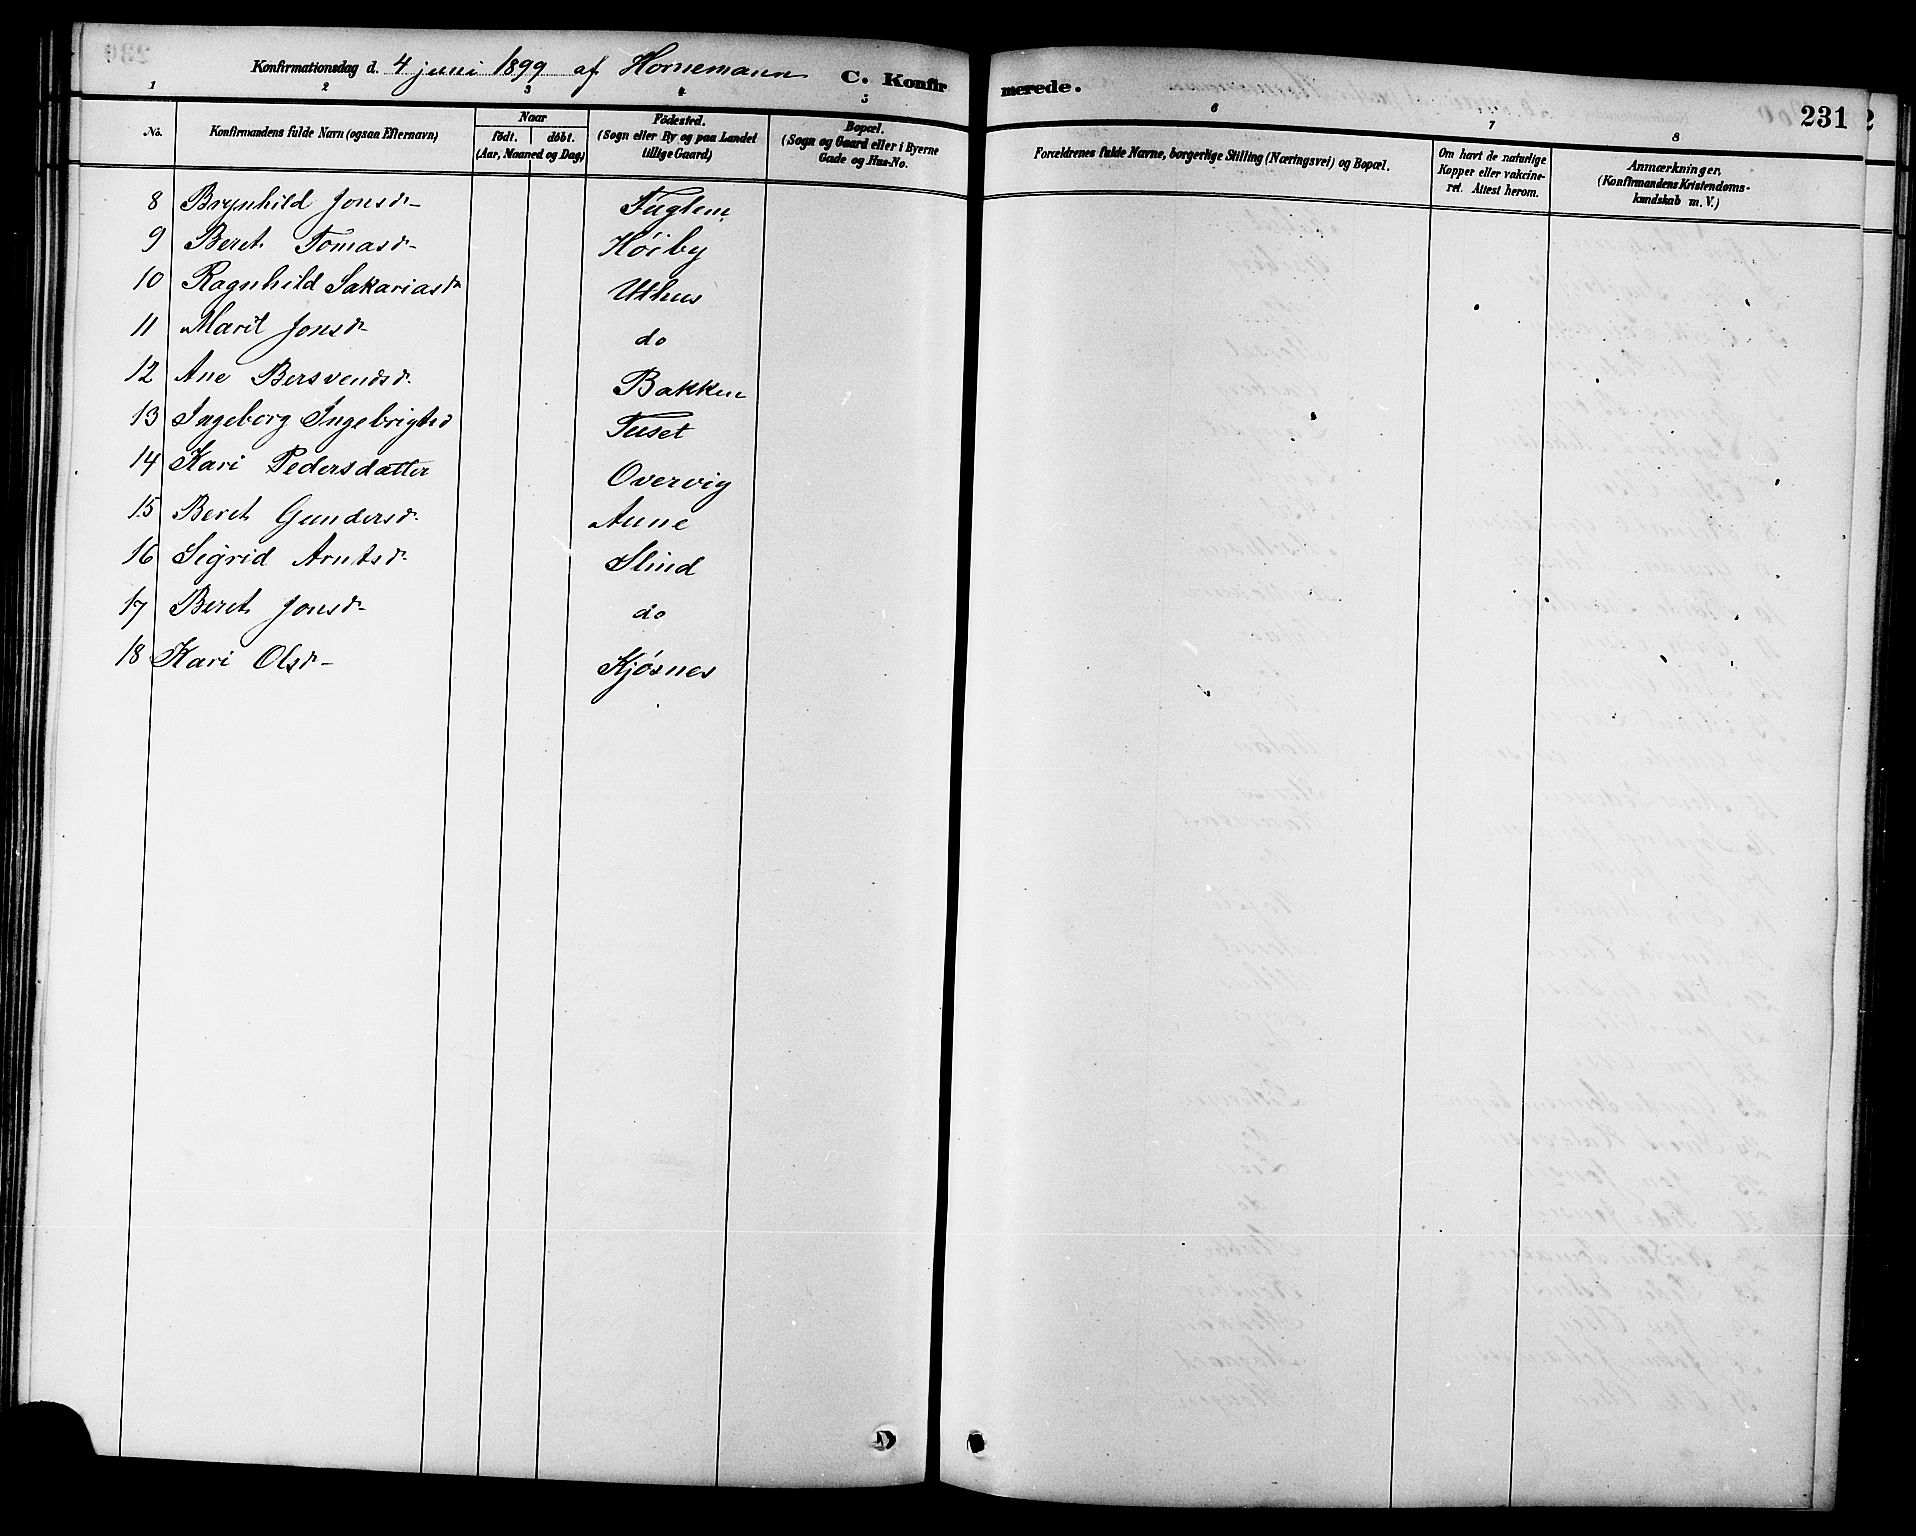 Konfirmationsdag d. 4 juni 1899 af Hornemann C. Konfirmerede. 231
1 2 3 4 5 6 7 8
No. Konfirmandens fulde Navn (ogsaa Efternavn) Naar födt. döbt. (Aar, Maaned og Dag) Födested. (Sogn eller By og paa Landet tillige Gaard) Bopæl. (Sogn og Gaard eller i Byerne Gade og Hus-No. Forældrenes fulde Navne, borgerlige Stilling (Næringsvei) og Bopæl. Om havt de naturlige Kopper eller vakcineret. Attest herom. Anmærkninger, (Konfirmandens Kristendomskundskab m. V.)
8 Brynhild Jonsd. Fuglem
9 Beret Tomasd. Höiby
10 Ragnhild Sakariasd. Uthus
11 Marit Jonsd. do
12 Ane Bersvendsd. Bakken
13 Ingeborg Ingebrigtsd Tuset
14 Kari Pedersdatter Overvig
15 Beret Gundersd. Aune
16 Sigrid Arntsd. Slind
17 Beret Jonsd. do
18 Kari Olsd. Kjösnes